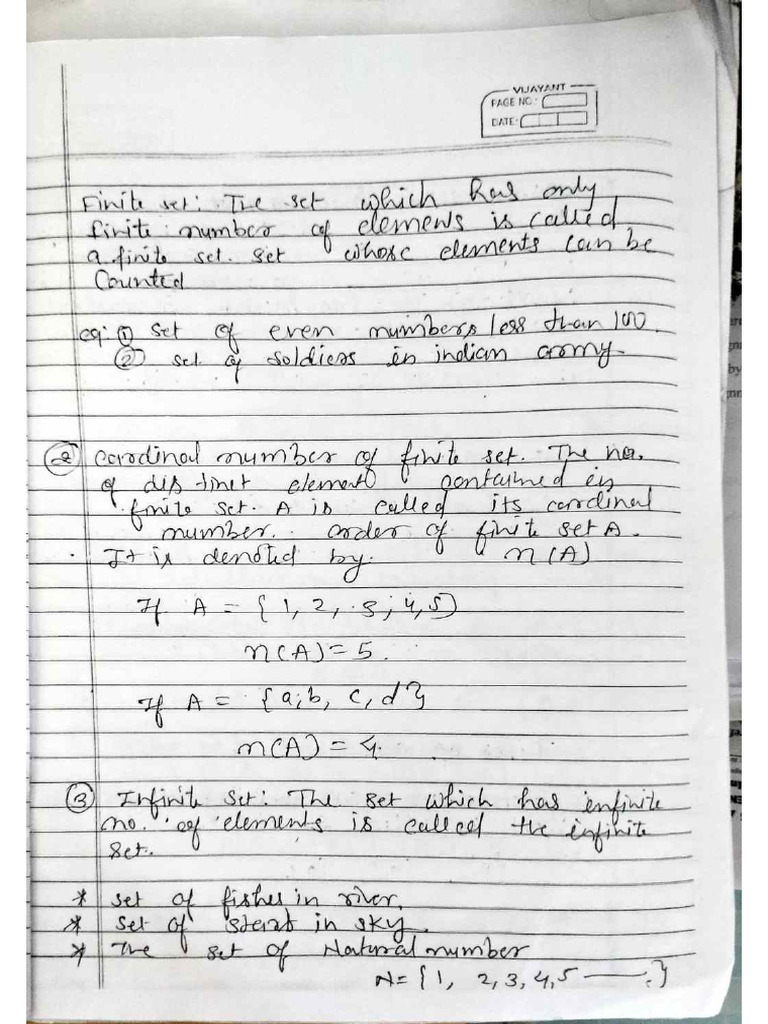 VIJAYANT
PAGE NO:
DATE:
Finite set: The set which has only
finite number of elements is called
a finite set. set whose elements can be
Counted
eg: ① set of even numbers less than 100.
② set of soldiers in indian army.
② cardinal number of finite set. The no.
of distinct element contained in
finite set. A is called its cardinal
number. order of finite set A.
It is denoted by. n(A)
If A = {1, 2, 3, 4, 5}
n(A) = 5.
If A = {a, b, c, d}
n(A) = 4.
③ Infinite set: The set which has infinite
no. of elements is called the infinite
set.
* set of fishes in river.
* set of stars in sky.
* The set of Natural number
N = {1, 2, 3, 4, 5 ——.}